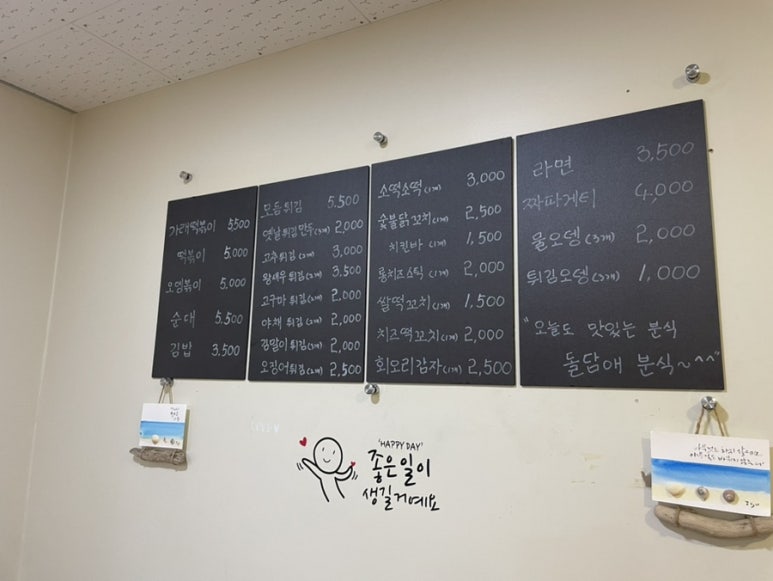 가래떡볶이 5,500
떡볶이 5,000
오뎅볶이 5,000
순대 5,500
김밥 3,500
모듬튀김 5,500
옛날튀김만두(3개) 2,000
고추튀김(2개) 3,000
왕새우튀김(2개) 3,500
고구마튀김(3개) 2,000
야채튀김(2개) 2,000
김말이튀김(3개) 2,000
오징어튀김(2개) 2,500
소떡소떡(1개) 3,000
숯불닭꼬치(1개) 2,500
치킨바(1개) 1,500
롱치즈스틱(1개) 2,000
쌀떡꼬치(1개) 1,500
치즈떡꼬치(1개) 2,000
회오리감자(1개) 2,500
라면 3,500
짜파게티 4,000
물오뎅(3개) 2,000
튀김오뎅(3개) 1,000
"오늘도 맛있는 분식
돌담애 분식~^^"
'HAPPY DAY'
좋은일이
생길거예요